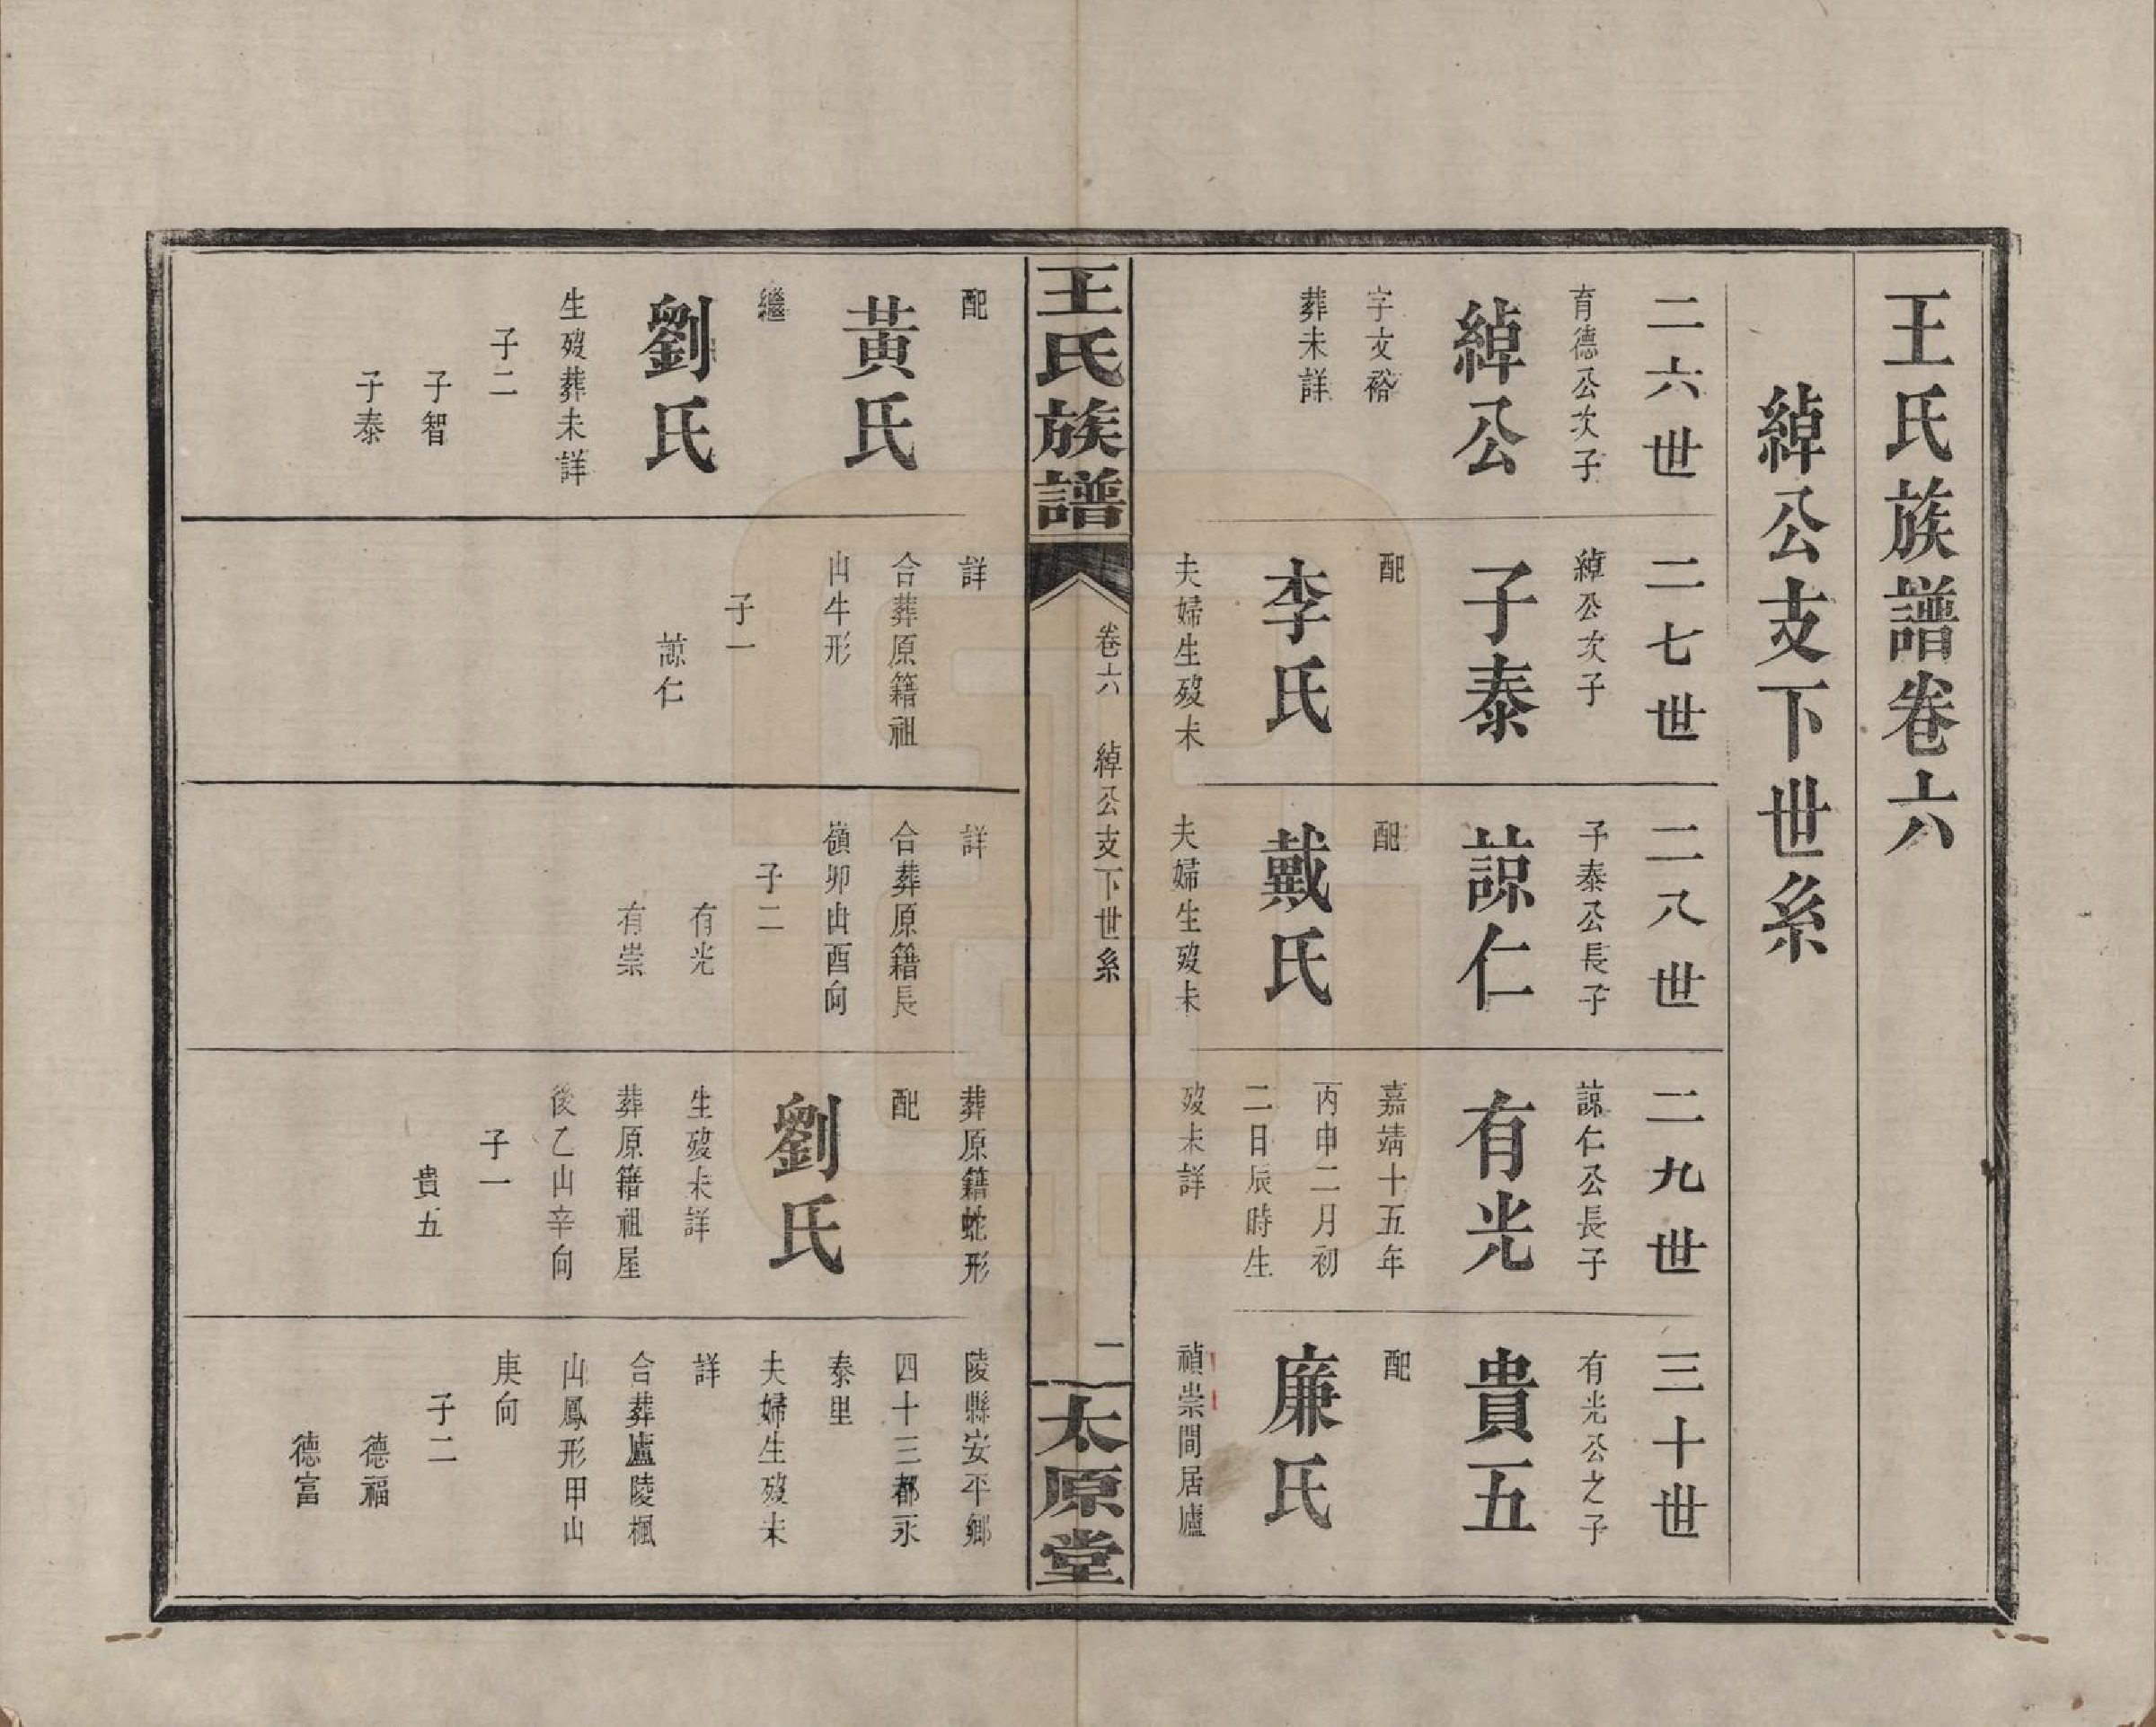 王氏族譜卷六
綽公支下世系
二六世
育德公次子
綽公
字文裕
葬未詳
二七世
綽公次子
子泰
配
李氏
夫婦生歿未
二八世
子泰公長子
諒仁
配
戴氏
夫婦生歿未
二九世
諒仁公長子
有光
嘉靖十五年
丙申二月初
二日辰時生
歿未詳
三十世
有光公之子
貴五
配
廉氏
禎崇間居廬
王氏族譜
卷六
綽公支下世系
一
太原堂
配
黃氏
繼
劉氏
生歿葬未詳
子二
子智
子泰
詳
合葬原籍祖
山牛形
子一
諒仁
詳
合葬原籍長
嶺卯山酉向
子二
有光
有崇
葬原籍蛇形
配
劉氏
生歿未詳
葬原籍祖屋
後乙山辛向
子一
貴五
陵縣安平鄉
四十三都永
泰里
夫婦生歿未
詳
合葬廬陵楓
山鳳形甲山
庚向
子二
德福
德富